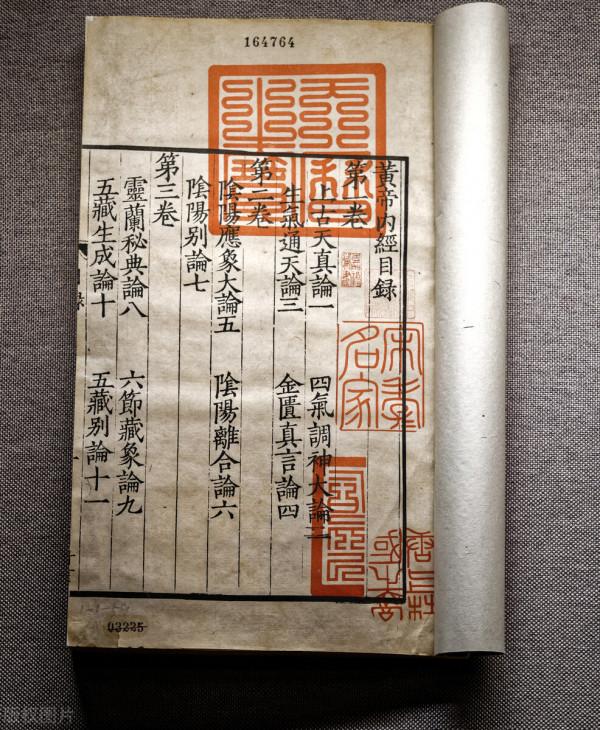 164764
黃帝內經目録
第一卷
上古天真論一 四氣調神大論二
生氣通天論三 金匱真言論四
第二卷
陰陽應象大論五 陰陽離合論六
陰陽别論七
第三卷
靈蘭秘典論八 六節藏象論九
五藏生成論十 五藏别論十一
03225
版权图片